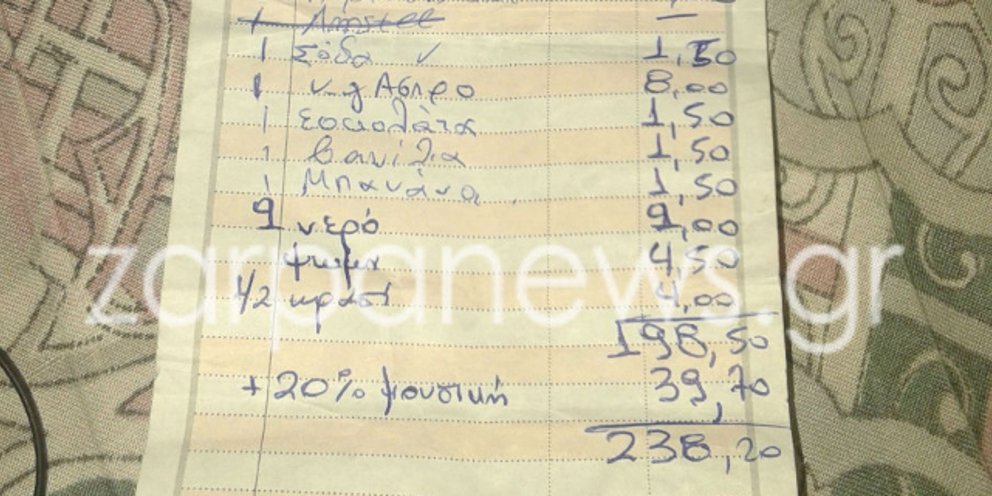 1 Amstel —
1 Σόδα ✓ 1,50
1 Ν.g Ασπρο 8,00
1 Σοκολάτα 1,50
1 Βανίλια 1,50
1 Μπανάνα 1,50
9 νερό 9,00
ψωμι 4,50
1/2 κρασί 4,00
198,50
+20% μουσική 39,70
238,20
zarpanews.gr